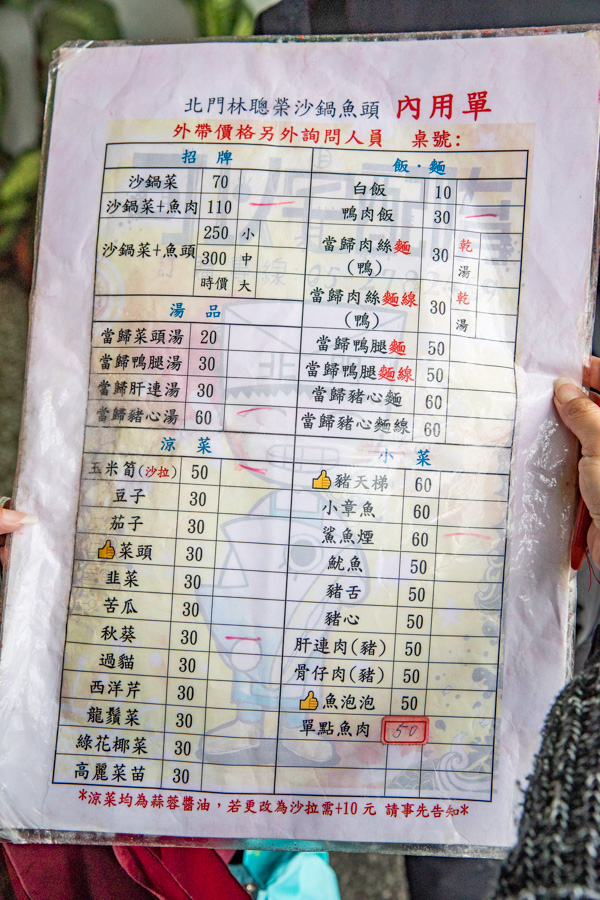 北門林聰榮沙鍋魚頭 內用單
外帶價格另外詢問人員 桌號:
招牌
沙鍋菜 70
沙鍋菜+魚肉 110
沙鍋菜+魚頭
250 小
300 中
時價 大
湯品
當歸菜頭湯 20
當歸鴨腿湯 30
當歸肝連湯 30
當歸豬心湯 60
涼菜
玉米筍(沙拉) 50
豆子 30
茄子 30
菜頭 30
韭菜 30
苦瓜 30
秋葵 30
過貓 30
西洋芹 30
龍鬚菜 30
綠花椰菜 30
高麗菜苗 30
飯·麵
白飯 10
鴨肉飯 30
當歸肉絲麵 30 乾
(鴨) 湯
當歸肉絲麵線 30 乾
(鴨) 湯
當歸鴨腿麵 50
當歸鴨腿麵線 50
當歸豬心麵 60
當歸豬心麵線 60
小菜
豬天梯 60
小章魚 60
鯊魚煙 60
魷魚 50
豬舌 50
豬心 50
肝連肉(豬) 50
骨仔肉(豬) 50
魚泡泡 50
單點魚肉 50
*涼菜均為蒜蓉醬油，若更改為沙拉需+10元 請事先告知*